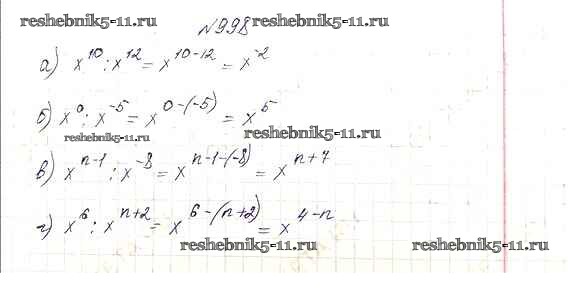 reshebnik5-11.ru №998 reshebnik5-11.ru
а) x^10 : x^12 = x^10-12 = x^-2
б) x^0 : x^-5 = x^0-(-5) = x^5
reshebnik5-11.ru reshebnik5-11.ru
в) x^n-1 : x^-8 = x^n-1-(-8) = x^n+7
г) x^6 : x^n+2 = x^6-(n+2) = x^4-n
reshebnik5-11.ru reshebnik5-11.ru